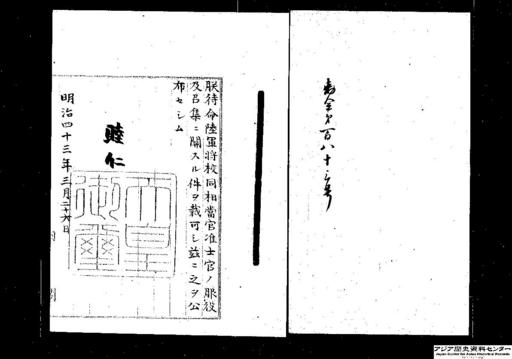 勅令第百八十三号
朕待命陸軍将校同相当官准士官ノ服役
及召集ニ関スル件ヲ裁可シ茲ニ之ヲ公
布セシム
睦仁
天皇御璽
明治四十三年三月二十六日
内閣
アジア歴史資料センター
Japan Center for Asian Historical Records